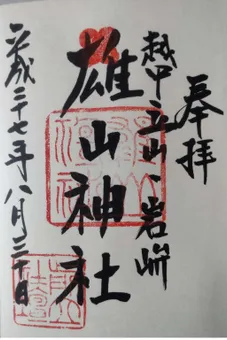 奉拝
越中立山 岩峅
雄山神社
平成二十七年八月三十日